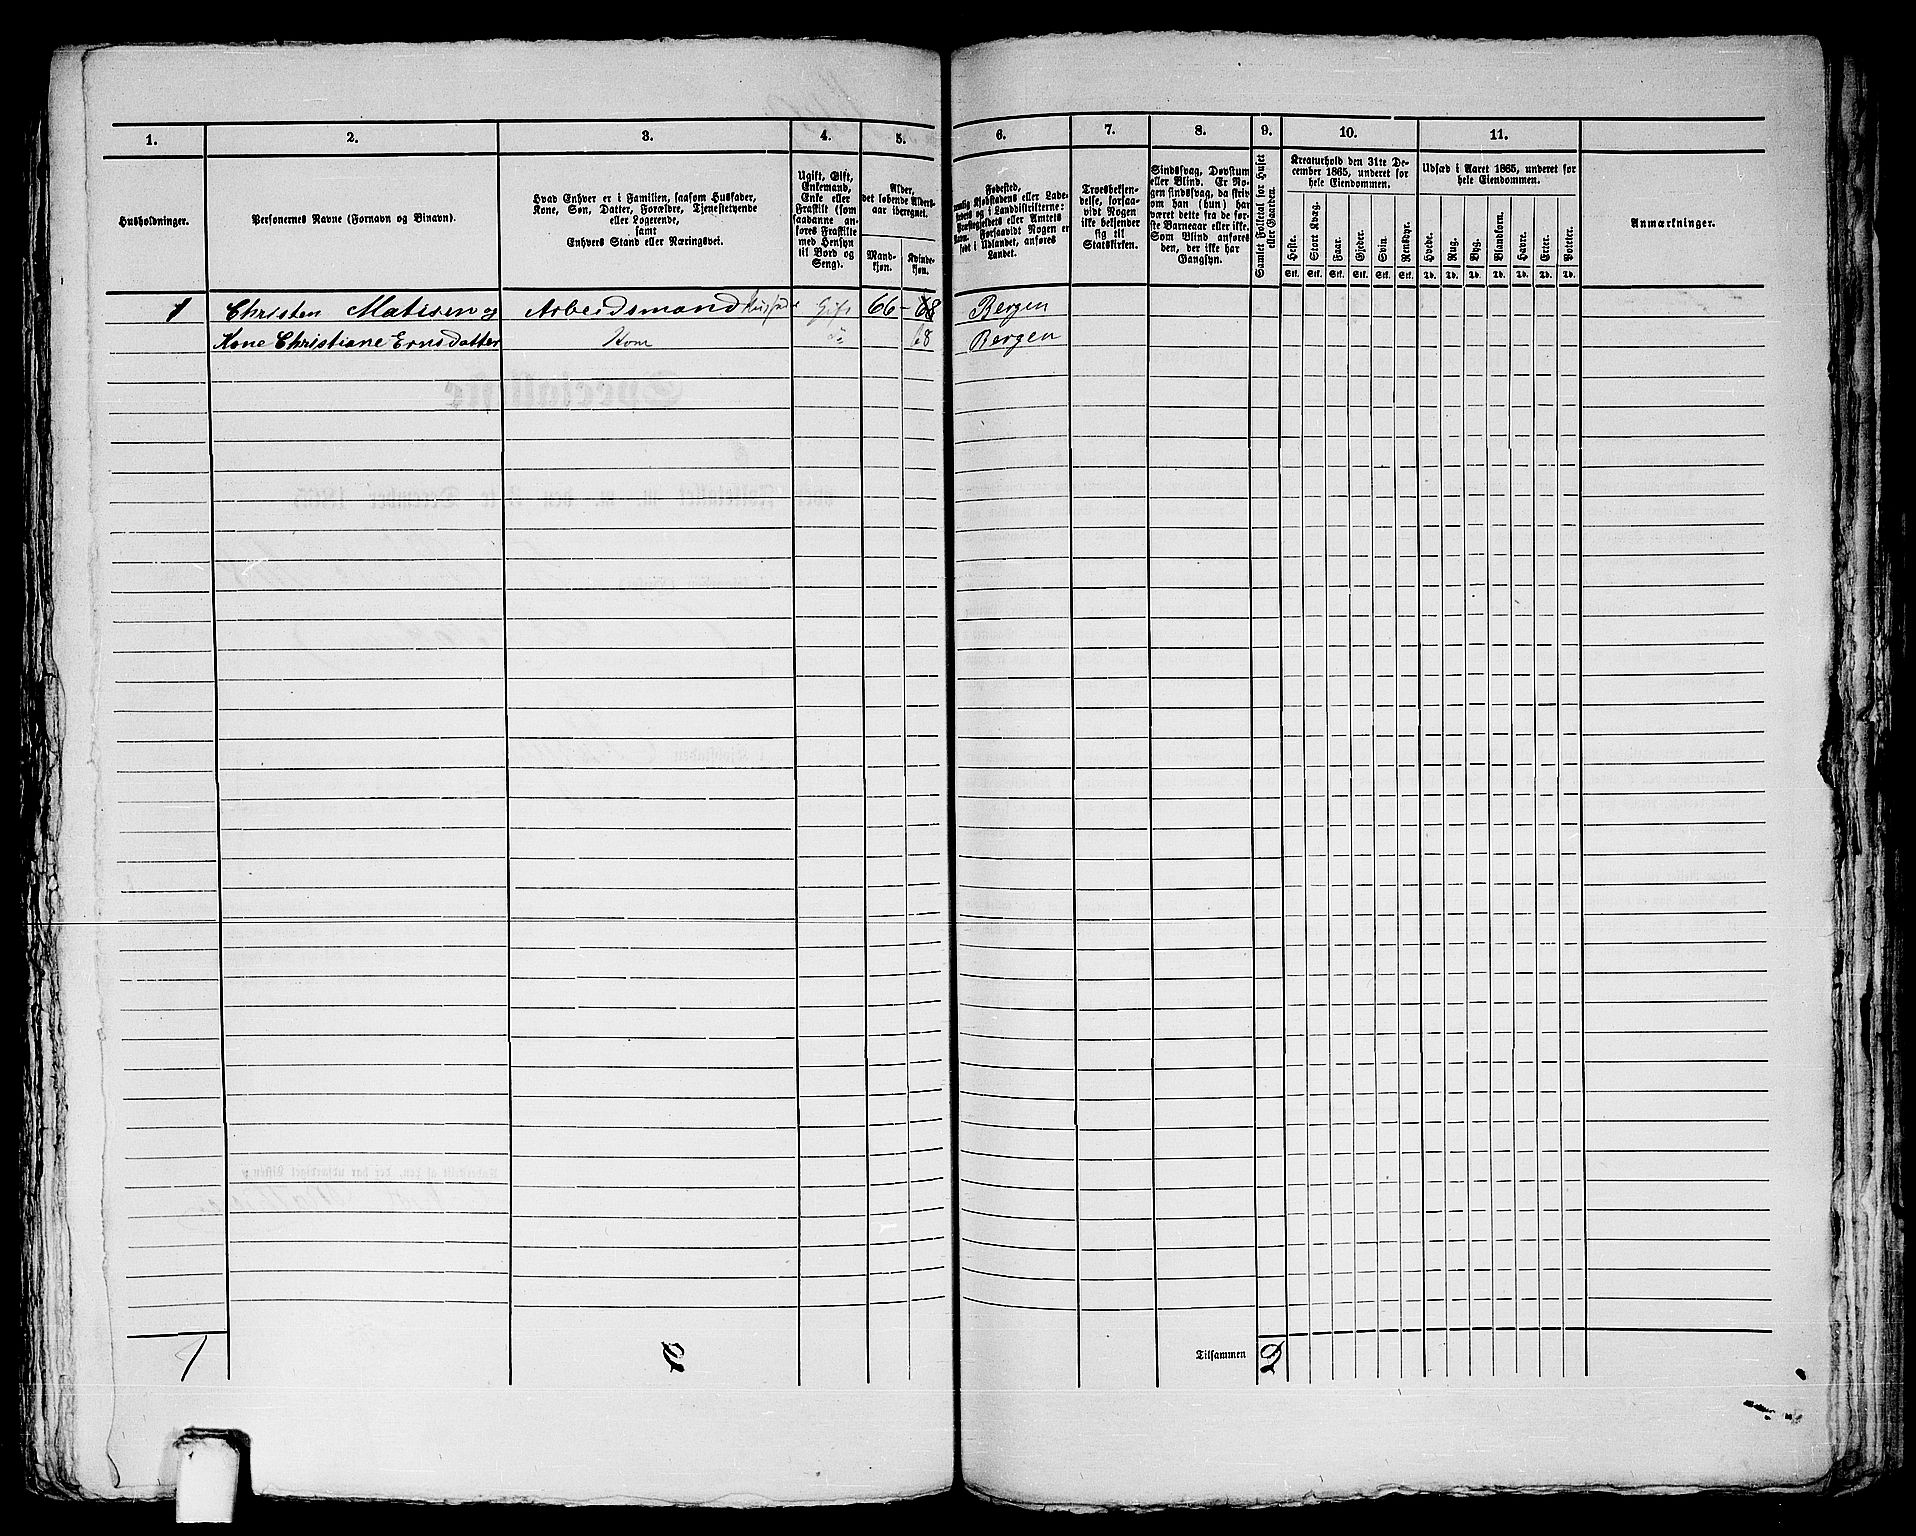 1. 2. 3. 4. 5. 6. 7. 8. 9. 10. 11.
Husholdninger.
Personernes Navne (Fornavn og Binavn).
Hvad Enhver er i Familien, saasom Husfader,
Kone, Søn, Datter, Forældre, Tjenestetyende
eller Logerende,
samt
Enhvers Stand eller Næringsvei.
Ugift, Gift,
Enkemand,
Enke eller
Fraskilt (som
saadanne an-
føres Fraskilte
med Hensyn
til Bord og
Seng).
Alder,
det løbende Alders-
aar iberegnet.
Mand-
kjøn.
Kvinde-
kjøn.
Fødested,
nemlig Kjøbstadens eller Lade-
stedets og i Landdistrikterne:
Præstegjeldets eller Amtets
Navn. Forsaavidt Nogen er
født i Udlandet, anføres
Landet.
Troesbekjen-
delse, forsaa-
vidt Nogen
ikke bekjender
sig til
Statskirken.
Sindssvag, Døvstum
eller Blind. Er No-
gen sindssvag, da skriv
om han (hun) har
været dette fra de før-
ste Barneaar eller ikke.
Som Blind anføres
den, der ikke har
Gangsyn.
Samlet Folketal for Huset
eller Gaarden.
Kreaturhold den 31te De-
cember 1865, underet for
hele Eiendommen.
Heste. Stort Kvæg. Faar. Gjeder. Svin. Rensdyr.
Stk. Stk. Stk. Stk. Stk. Stk.
Udsæd i Aaret 1865, underet for
hele Eiendommen.
Hvede. Rug. Byg. Blandkorn. Havre. Erter. Poteter.
Td. Td. Td. Td. Td. Td. Td.
Anmærkninger.
1 Christen Matisen og Arbeidsmand Husfader Gift 66 - 68 Bergen
Kone Christiane Ernsdatter Kone do 68 Bergen
1 2 Tilsammen 2